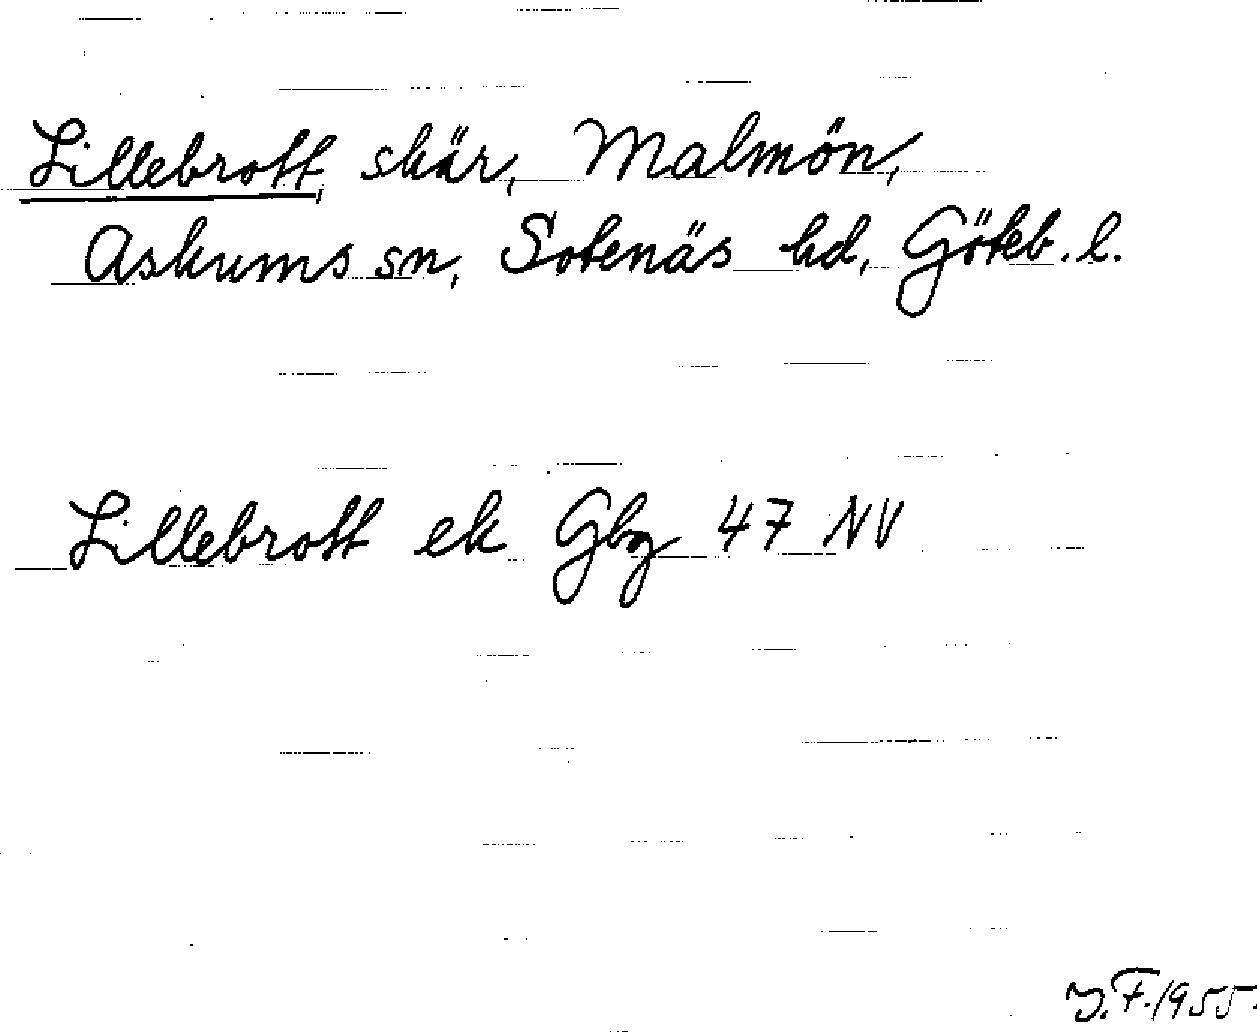 Lillebrott, skär, Malmön,
Askums sn, Sotenäs hd, Göteb. l.
Lillebrott ek Gbg 47 NV
J.F. 1955.